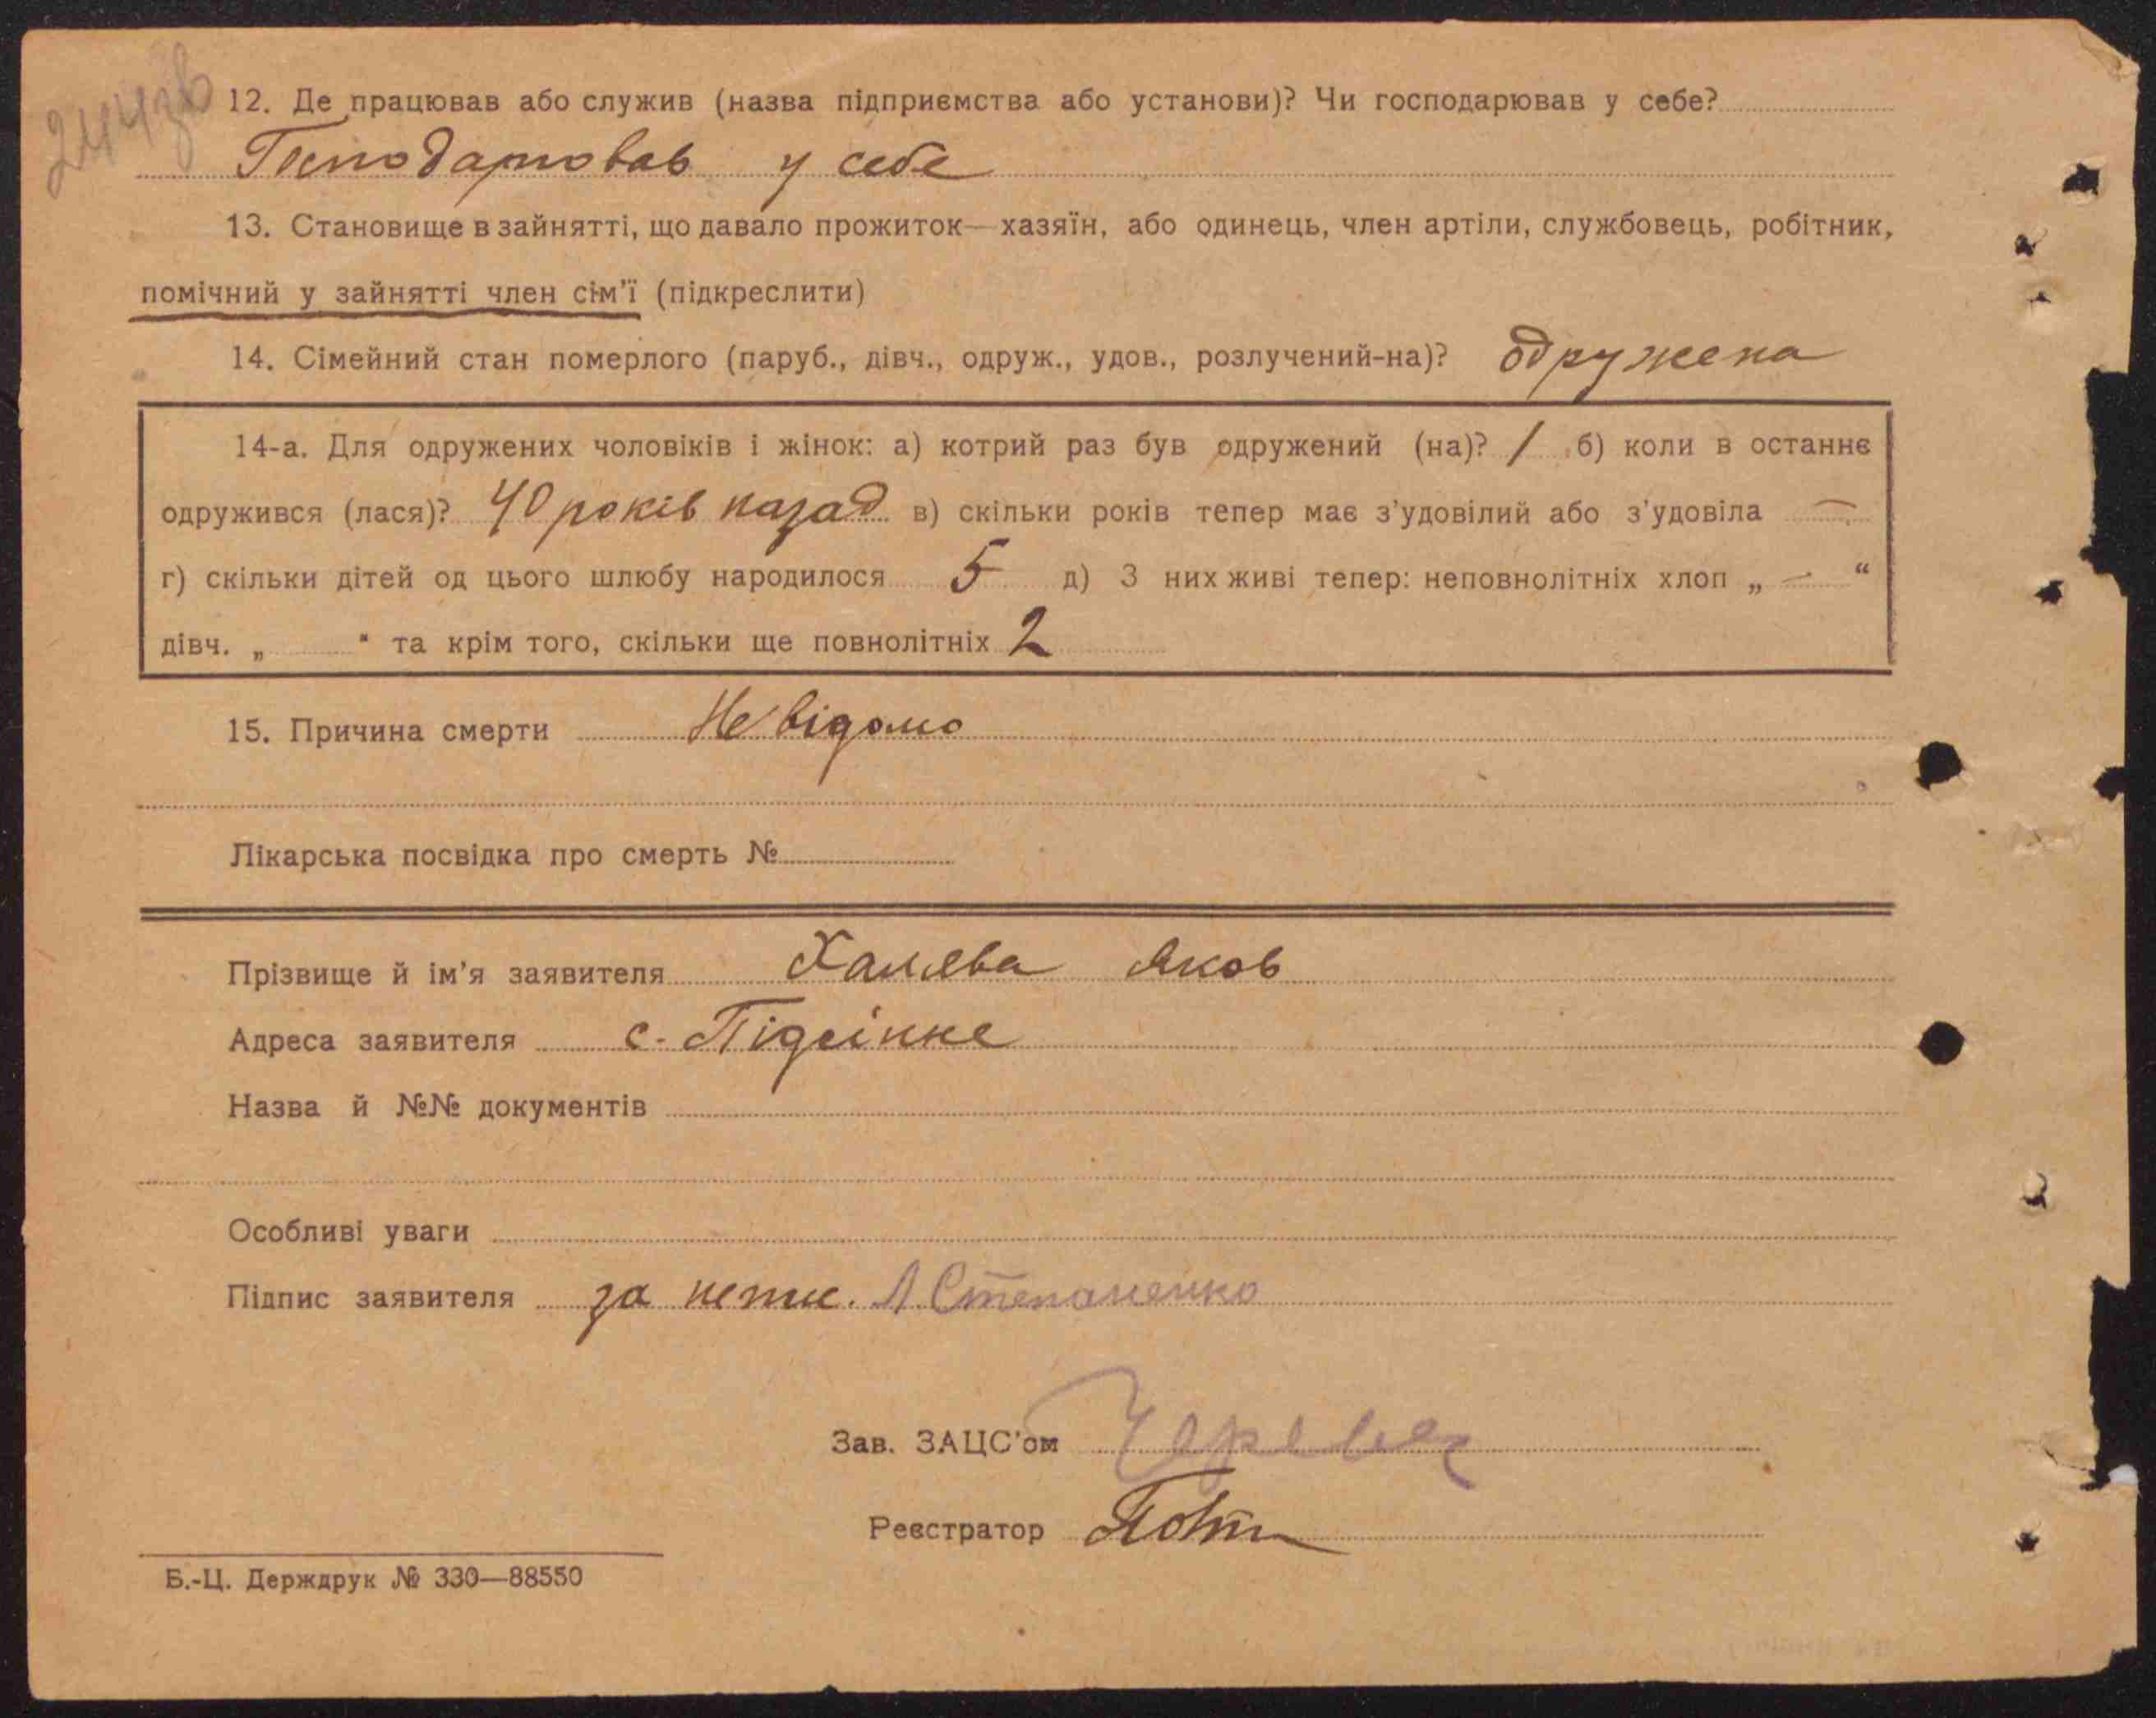 244зв
12. Де працював або служив (назва підприємства або установи)? Чи господарював у себе?
Господарював у себе
13. Становище в зайнятті, що давало прожиток—хазяїн, або одинець, член артіли, службовець, робітник,
помічний у зайнятті член сім'ї (підкреслити)
14. Сімейний стан померлого (паруб., дівч., одруж., удов., розлучений-на)? одружена
14-а. Для одружених чоловіків і жінок: а) котрий раз був одружений (на)? 1 б) коли в останнє
одружився (лася)? 40 років назад в) скільки років тепер має з'удовілий або з'удовіла —
г) скільки дітей од цього шлюбу народилося 5 д) З них живі тепер: неповнолітніх хлоп „ — “
дівч. „ “ та крім того, скільки ще повнолітніх 2
15. Причина смерти Не відомо
Лікарська посвідка про смерть №
Прізвище й ім'я заявителя Халява Яков
Адреса заявителя с.
Назва й №№ документів
Особливі уваги
Підпис заявителя за непис. Л Степаненко
Зав. ЗАЦС'ом
Реєстратор
Б.-Ц. Держдрук № 330—88550